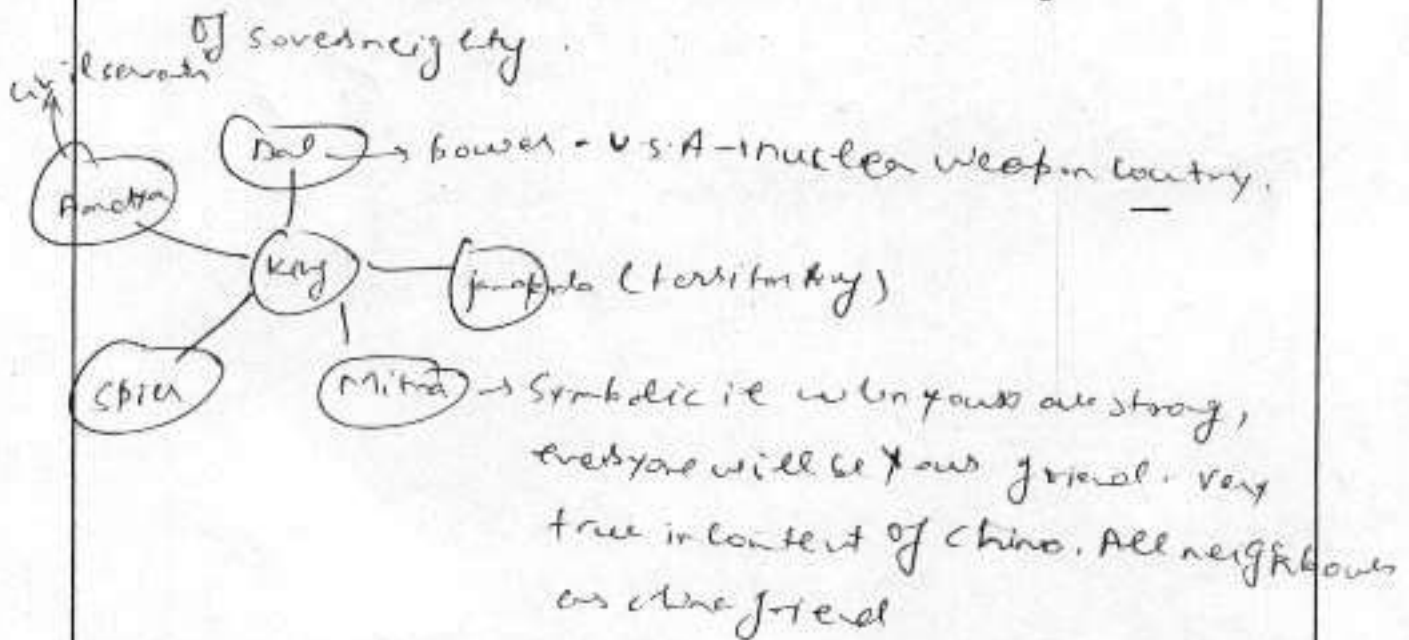 of soverneighty.
civil servants
Dal → power - U.S.A - nuclear weapon country.
Amatya
King
janapada (territory)
Spies
Mitra → Symbolic ie when you are strong,
everyone will be your friend. Very
true in context of China. All neighbours
are china friend